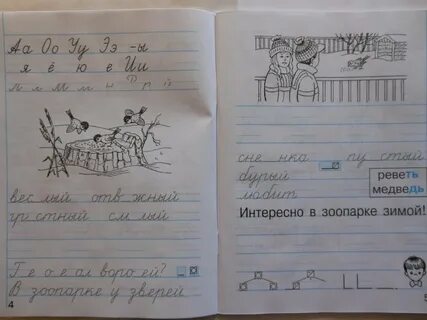 Аа Оо Уу Ээ -ы
я ё ю е Ии
л м М н Р р й
вес лый отв жный
гр стный см лый
Г е о е ал воро ей?
В зоопарке у зверей
4
сне нка пу стый
бурый
любит
реветь
медведь
Интересно в зоопарке зимой!
5